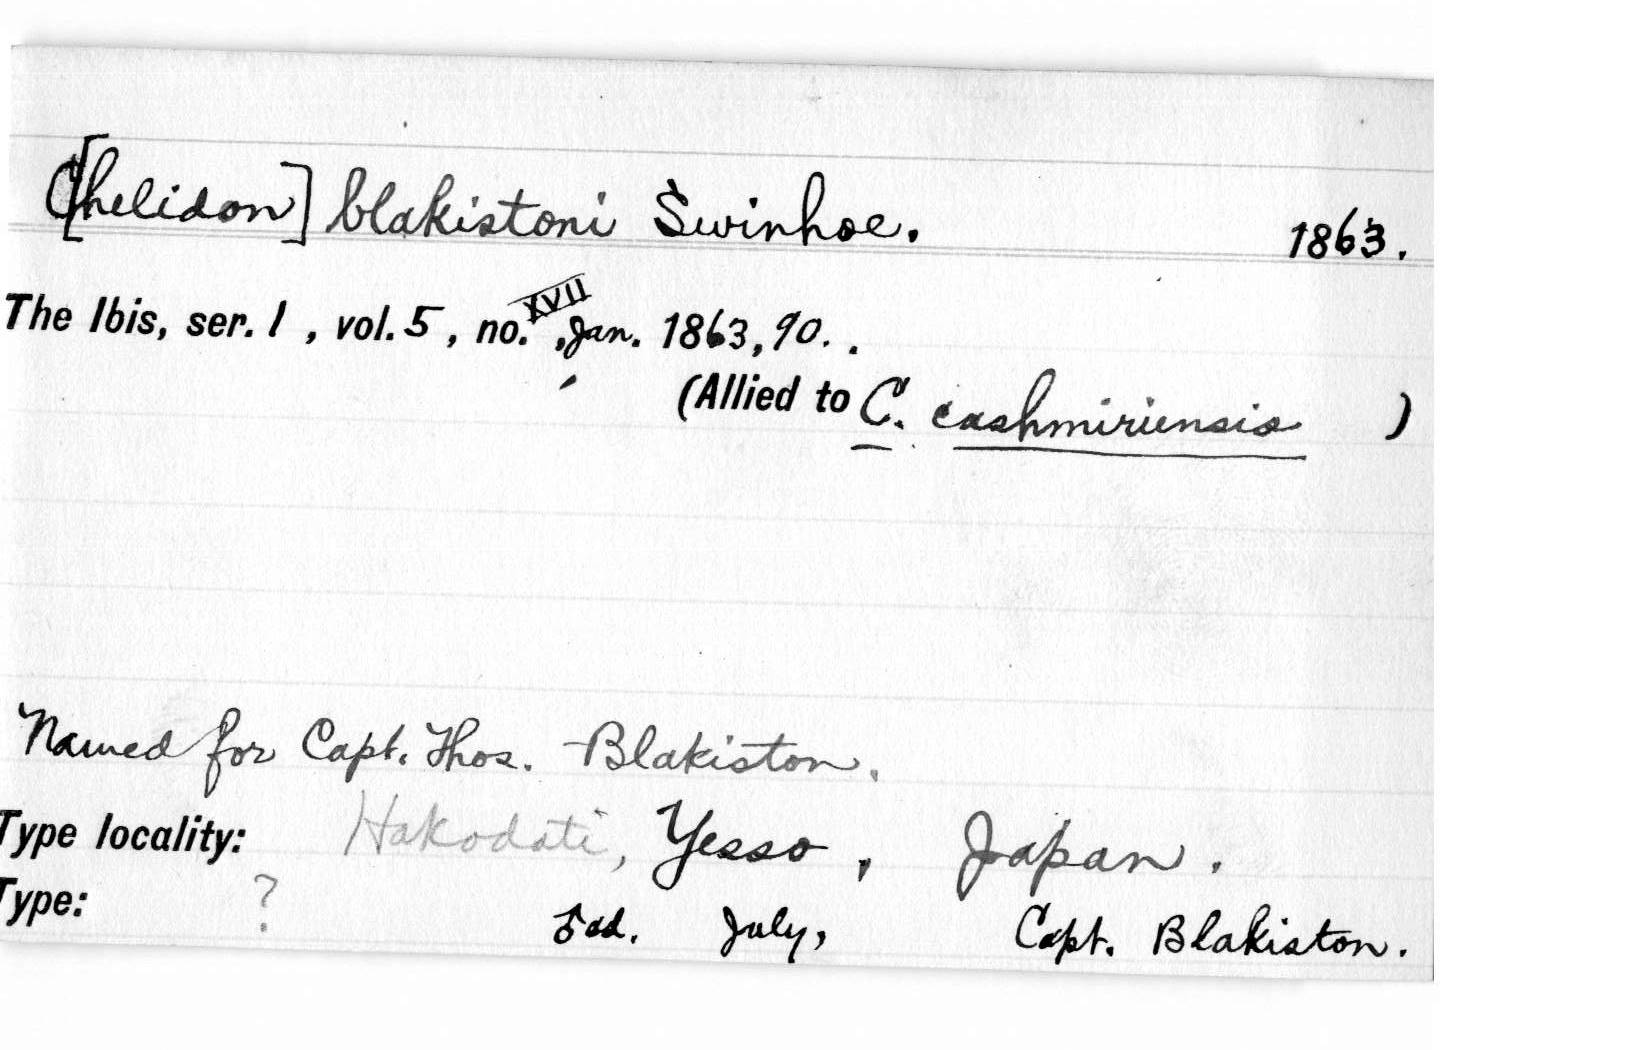 C[helidon] blakistoni Swinhoe. 1863.
The Ibis, ser. 1, vol. 5, no. XVII, Jan. 1863, 90..
(Allied to C. cashmiriensis )
Named for Capt. Thos. Blakiston.
Type locality: Hakodati, Yesso, Japan.
Type: ? ad. July, Capt. Blakiston.